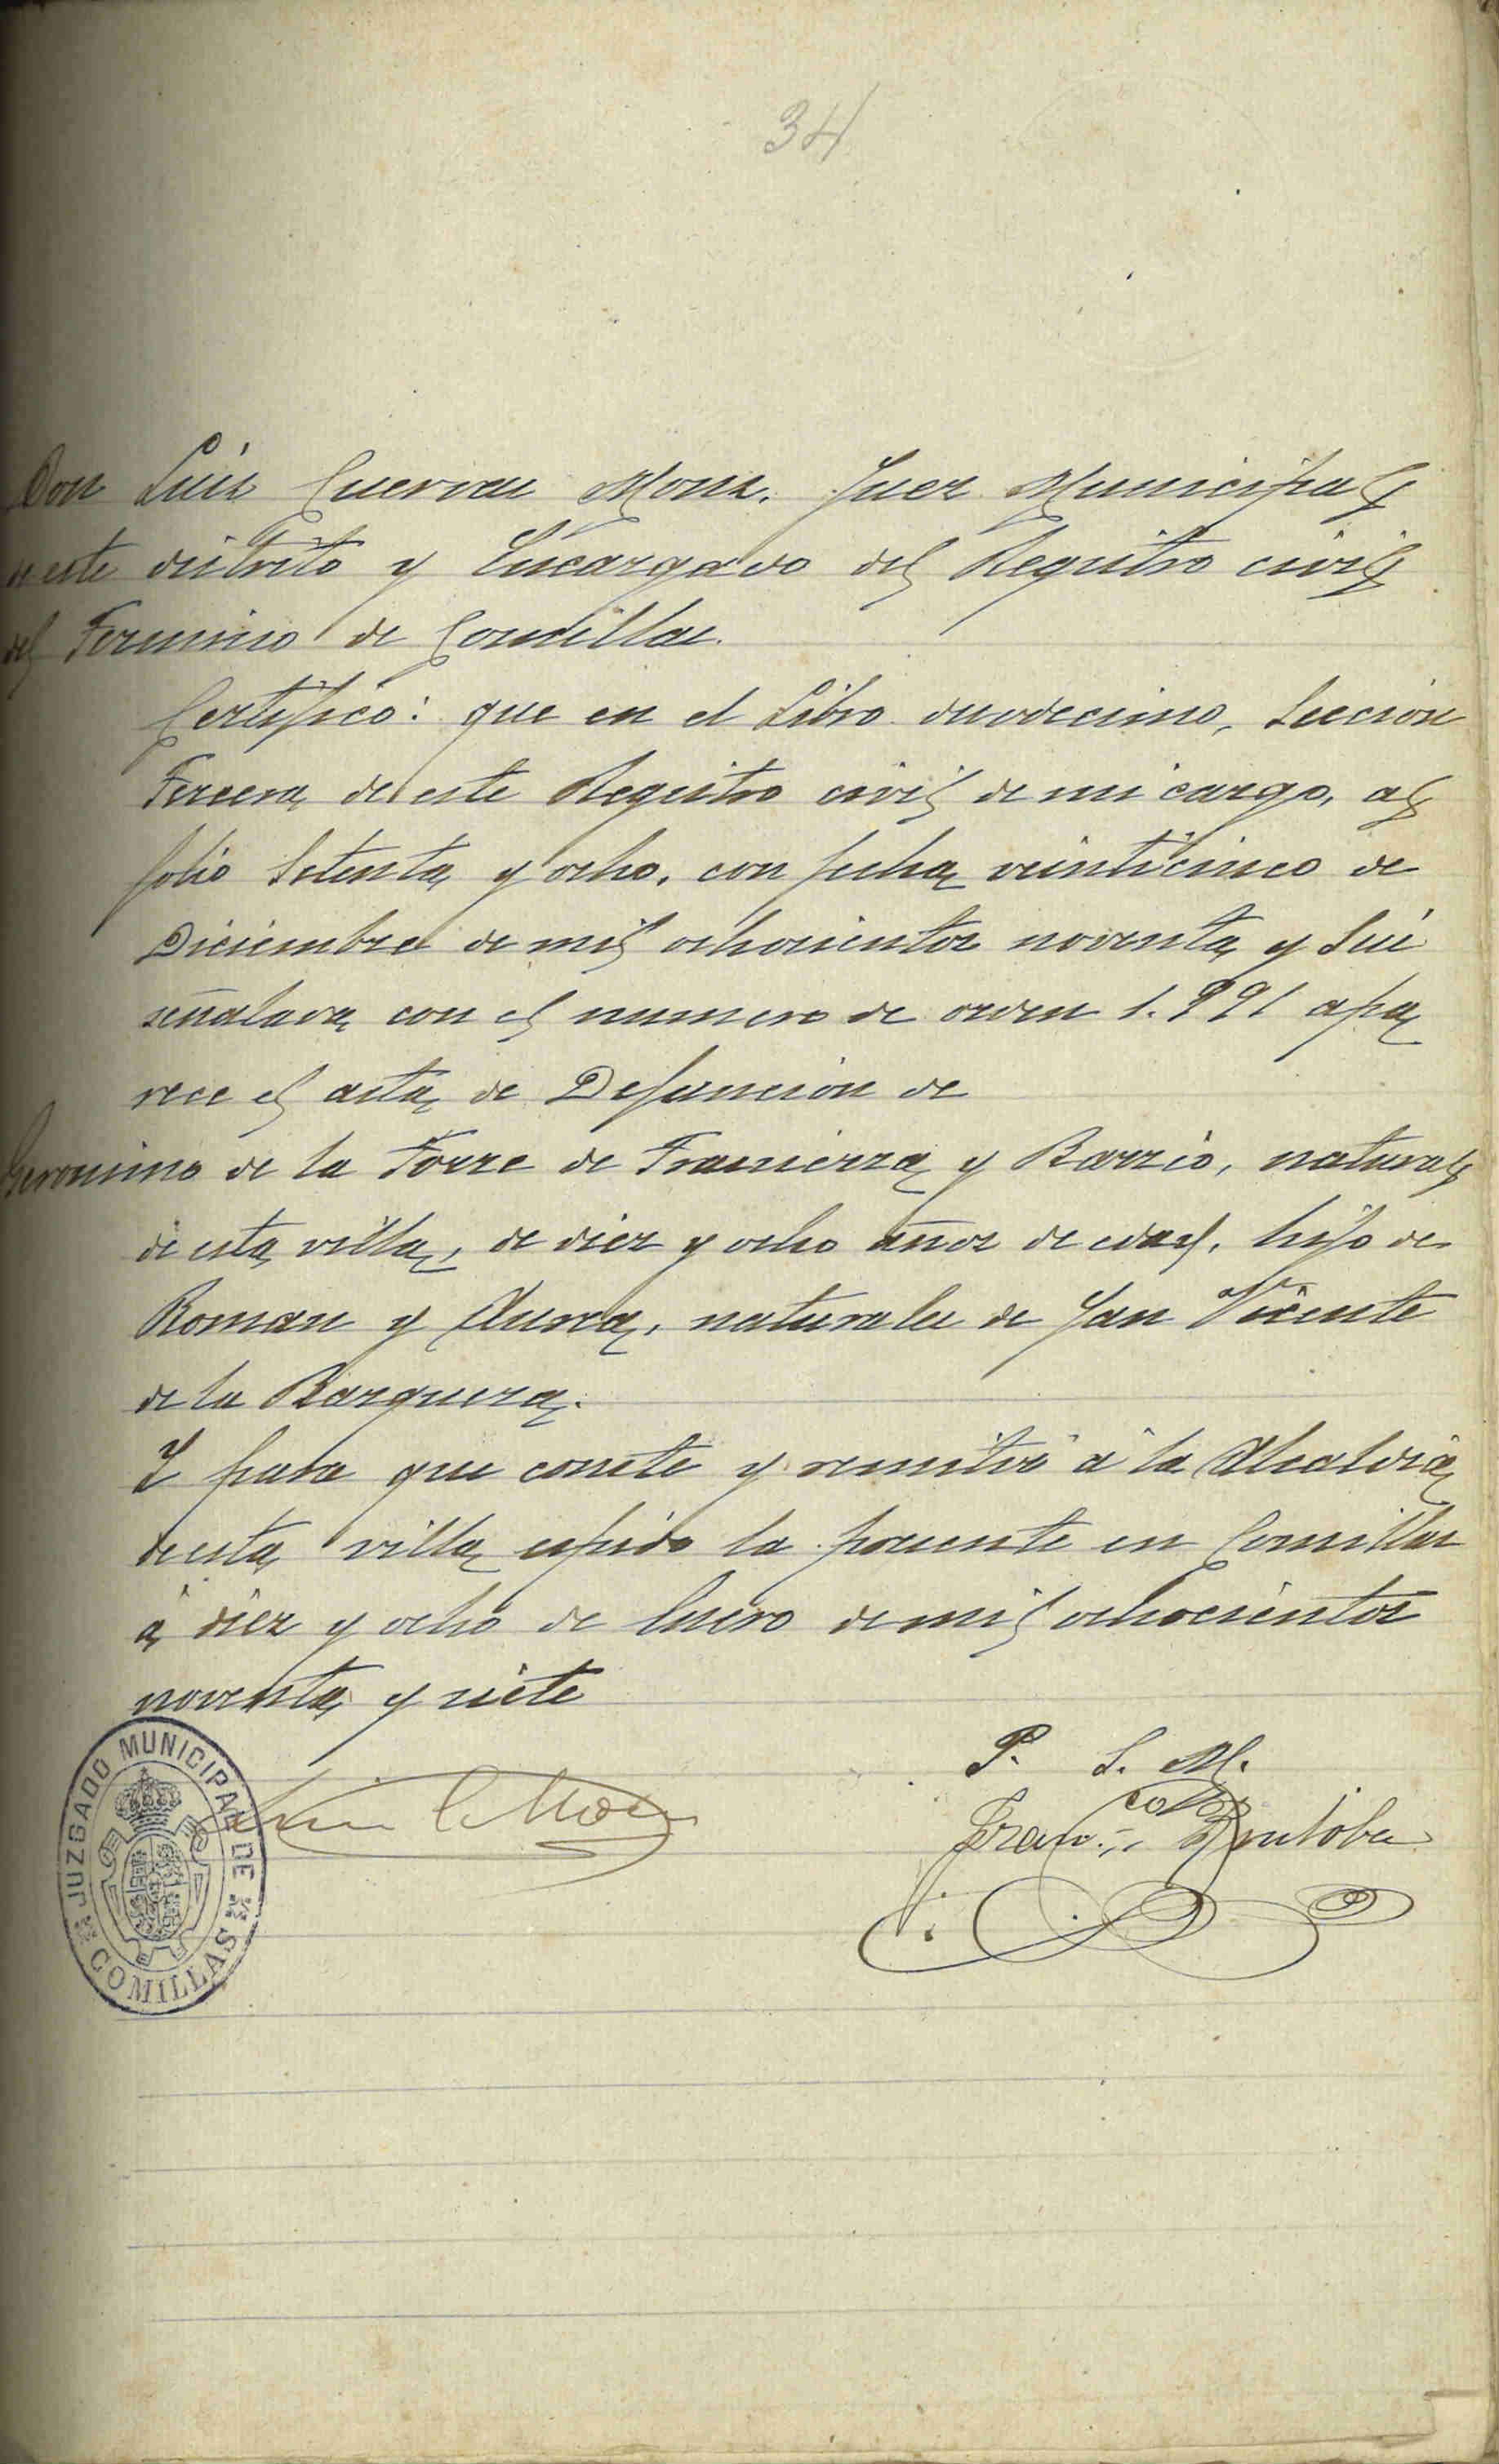 34
Don Luis Cuevas Mons. Juez Municipal
de este distrito y Encargado del Registro civil
del Termino de Comillas.
Certifico: que en el Libro duodecimo, Sección
Tercera de este Registro civil de mi cargo, al
folio Setenta y ocho, con fecha veinticinco de
Diciembre de mil ochocientos noventa y Seis
señalada con el numero de orden 1.991 apa
rece el acta de Defunción de
Geronimo de la Torre de Tramierra y Barrio, natural
de esta villa, de diez y ocho años de edad, hijo de
Roman y Aurea, naturales de San Vicente
de la Barquera.
Y para que conste y remitir á la Alcaldia
de esta villa expido la presente en Comillas
á diez y ocho de Enero de mil ochocientos
noventa y siete
P. S. M.
JUZGADO MUNICIPAL DE COMILLAS